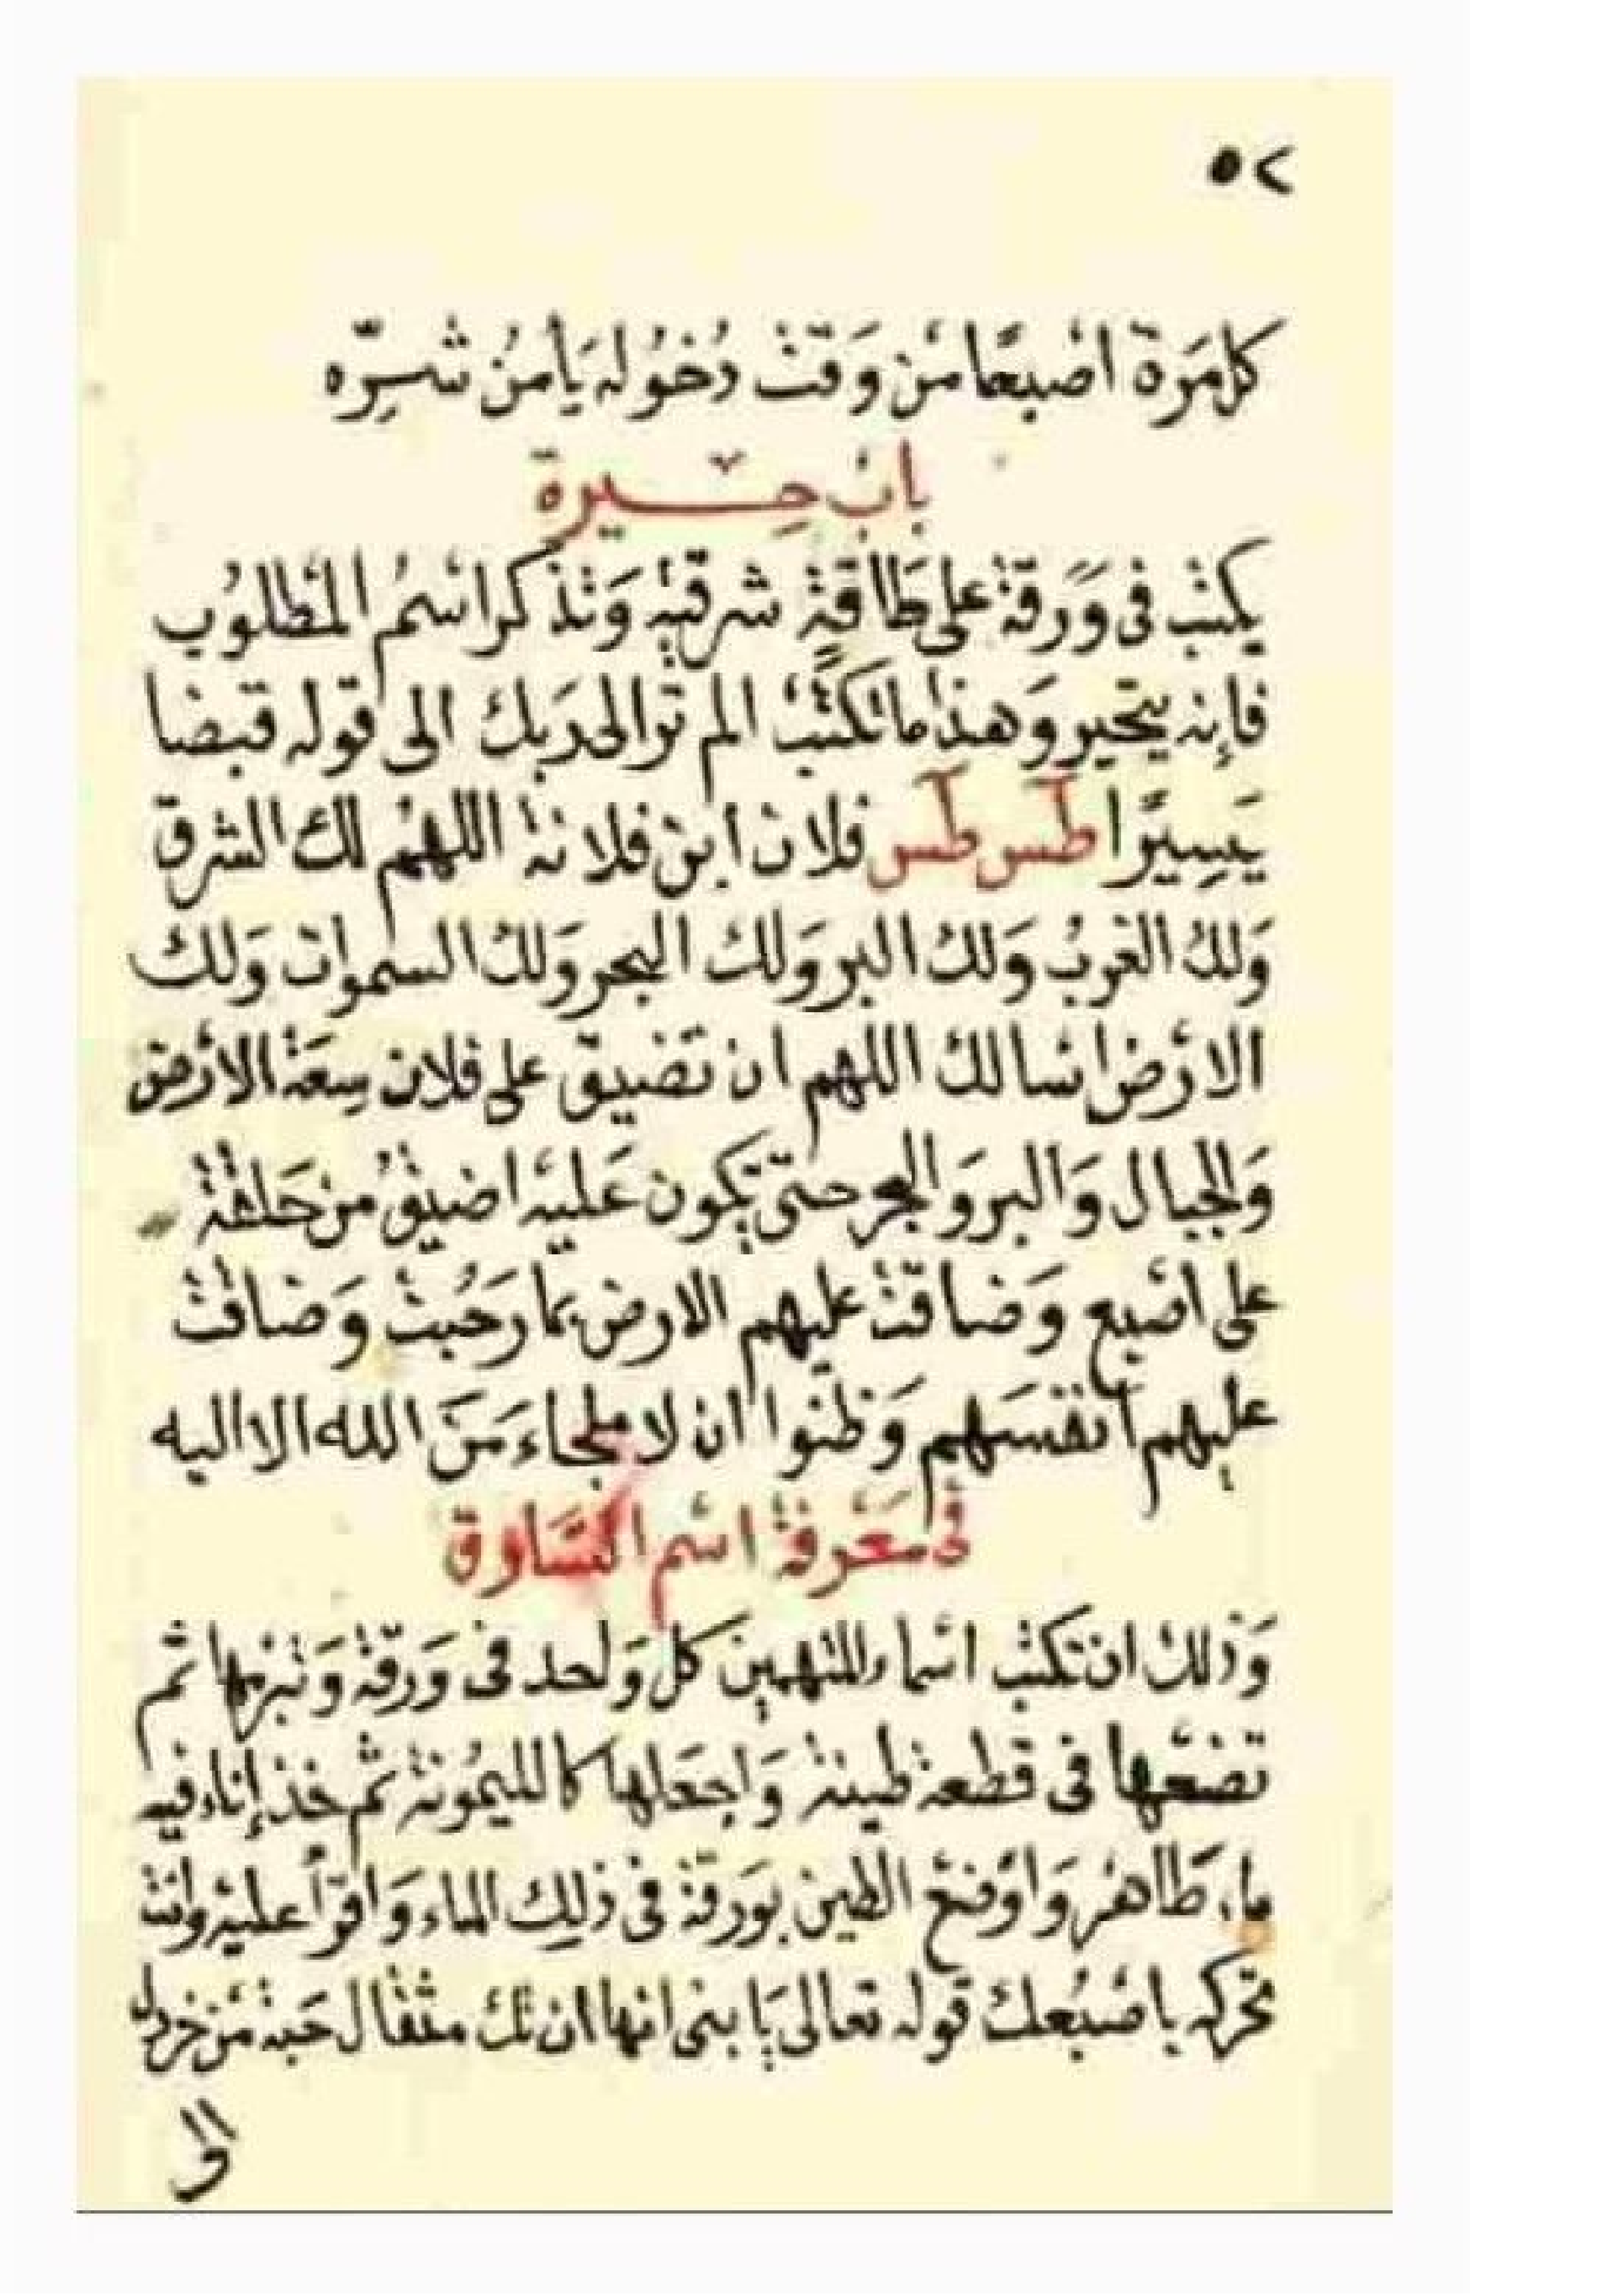 ٥٢
كل مرة اصبعا من وقت دخوله يأمن شره
باب حيرة
يكتب في ورقة على طاقة شرقية وتذكر اسم المطلوب
فإنه يتحير وهذا ما تكتب الم تر الى ربك الى قوله قبضا
يسيرا طس طس فلان ابن فلانة اللهم لك الشرق
ولك الغرب ولك البر ولك البحر ولك السموات ولك
الارض اسالك اللهم ان تضيق على فلان سعة الارض
والجبال والبر والبحر حتى يكون عليه اضيق من حلقة
على اصبع وضاقت عليهم الارض بما رحبت وضاقت
عليهم انفسهم وظنوا ان لا ملجاء من الله الا اليه
في معرفة اسم
وذلك ان تكتب اسماء المتهمين كل واحد في ورقة وتبرمها ثم
تضعها في قطعة طينة واجعلها كالليمونة ثم خذ إناء فيه
ماء طاهر واوضع الطين بورقة في ذلك الماء واقرأ عليه وانت
تحركه باصبعك قوله تعالى يا بنى انها ان تك مثقال حبة من خردل
الى